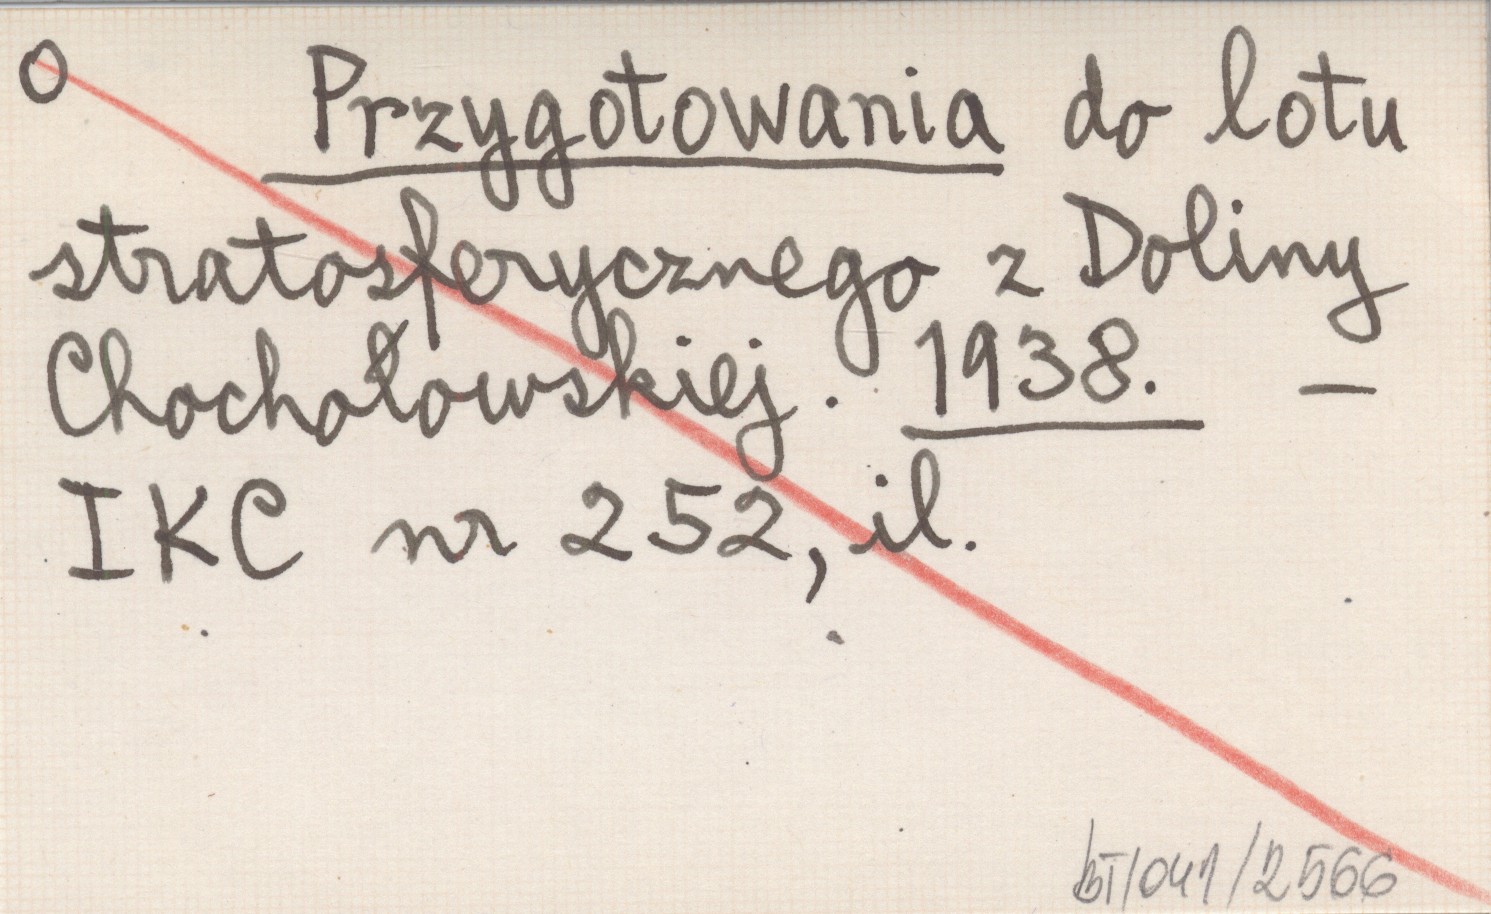 O Przygotowania do lotu
stratosferycznego z Doliny
Chochołowskiej. 1938. –
IKC nr 252, il.
BT/041/2566